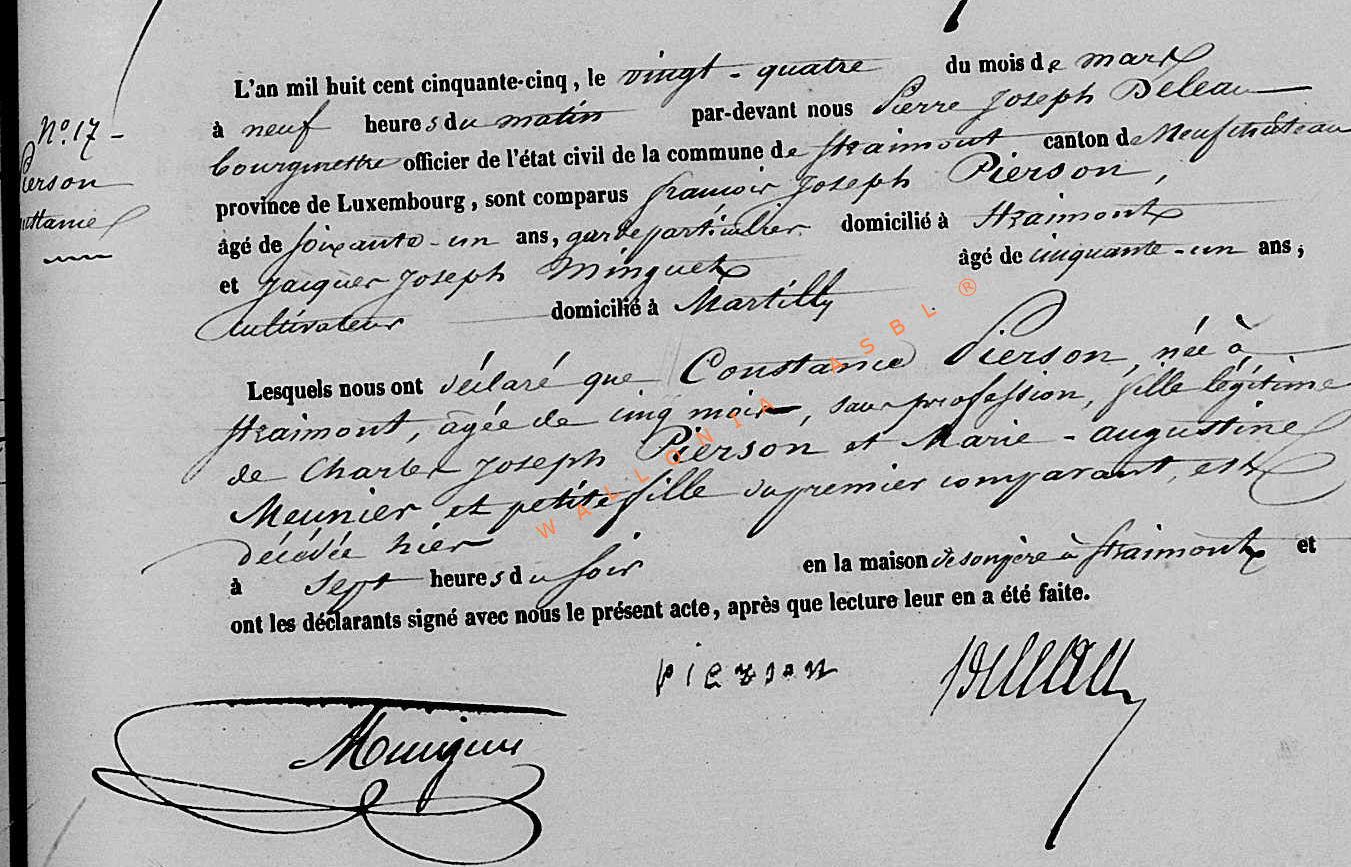 L'an mil huit cent cinquante-cinq, le vingt-quatre du mois de mars
à neuf heures du matin par-devant nous Pierre Joseph Deleau
N.° 17 -
bourgmestre officier de l'état civil de la commune de Straimont canton de Neufchâteau
Pierson
province de Luxembourg, sont comparus françois Joseph Pierson,
âgé de soixante-un ans, garde particulier domicilié à Straimont
et Jacques Joseph Minguet âgé de cinquante-un ans,
cultivateur domicilié à Martilly
Lesquels nous ont déclaré que Constance Pierson, née à
Straimont, agée de cinq mois, sans profession, fille légitime
de Charles Joseph Pierson et Marie-augustine
Meunier et petite fille du premier comparant, est
décédée hier
à sept heures du soir en la maison de son père à Straimont et
ont les déclarants signé avec nous le présent acte, après que lecture leur en a été faite.
pierson
WALLONIA ASBL ®